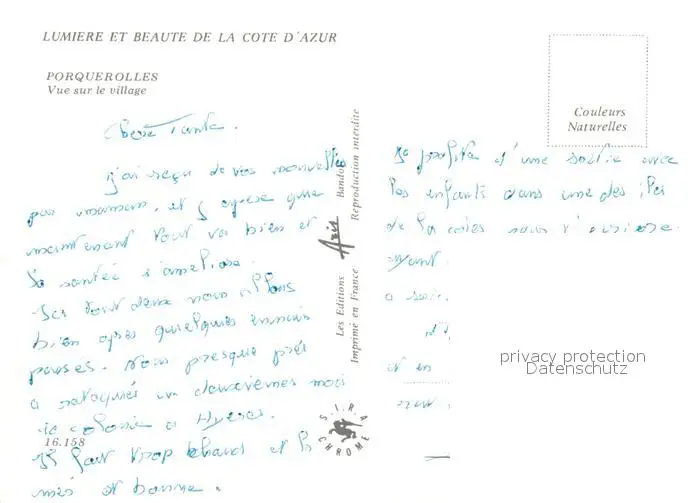 LUMIERE ET BEAUTE DE LA COTE D'AZUR
PORQUEROLLES
Vue sur le village
Couleurs
Naturelles
Chère Tante.
J'ai reçu de vos nouvelles
par maman, et j'espère que
maintenant tout va bien et
la santé s'améliore.
Ici tout deux nous allons
bien après quelques ennuis
passés. Nous presque prêt
a rattaquer un deuxièmes mois
de colonie a Hyères.
Il fait trop chaud et la
mer est bonne.
16.158
Je profite d'une sortie avec
les enfants dans une des îles
de la côtes pour
ayant
a
et en
Les Editions AZIR Bandol
Imprimé en France Reproduction interdite
S.I.R.A. CHROME
privacy protection
Datenschutz